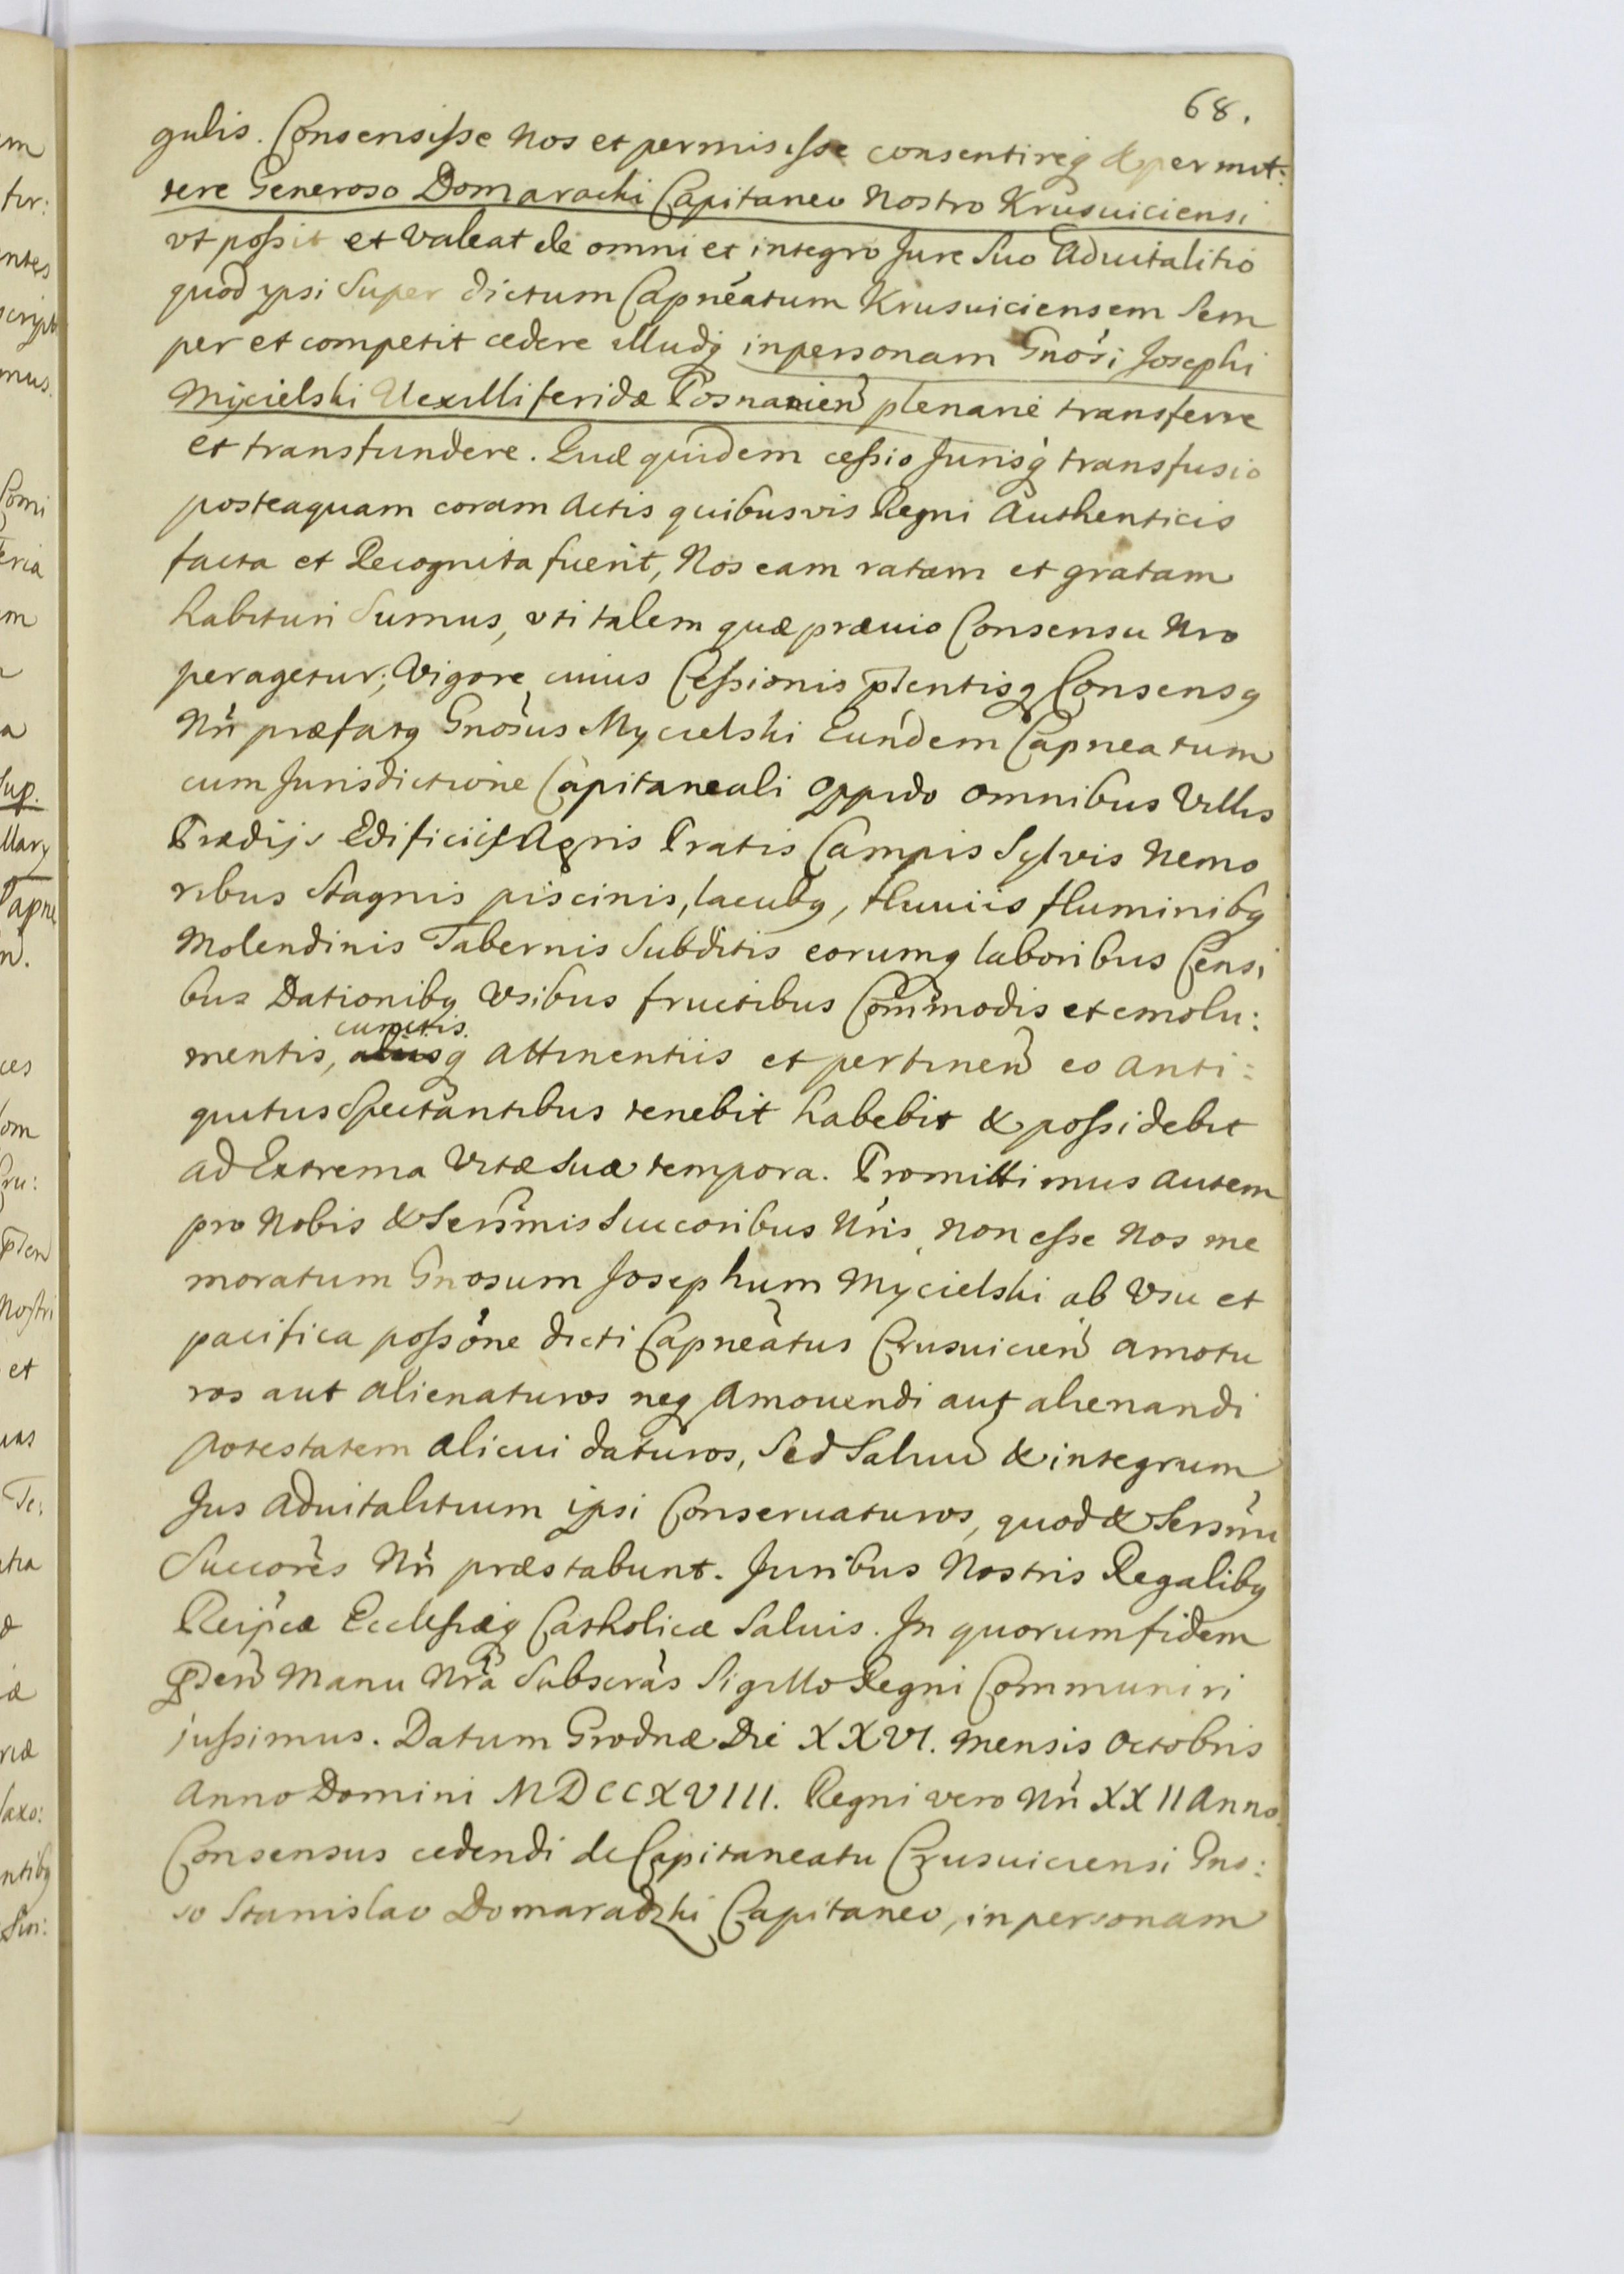 68.
gulis. Consensisse Nos et permisisse consentireq & permit:
tere Generoso Domaracki Capitaneo Nostro Krusuiciensi
vt possit et valeat de omni et integro Jure Suo Aduitalitio
quod ypsi Super dictum Capneatum Krusuiciensem Sem
per et competit cedere illudq inpersonam Gnosi Josephi
Mycielski Uexilliferidæ Posnanien plenarie transferre
et transfundere. Quæ quidem cessio Jurisq transfusio
posteaquam coram Actis quibusvis Regni Authenticis
facta et Recognita fuerit, Nos eam ratam et gratam
habituri Sumus, vti talem quæ præuio Consensu Nro
peragetur; Vigore cuius Cessionis pntentisq Consensq
Nri præfatq Gnosus Mycielski Eundem Capneatum
cum Jurisdictione Capitaneali Oppido omnibus Villis
Prædijs Edificiis Agris Pratis Campis Sylvis Nemo
ribus Stagnis piscinis, lacubq, fluuiis fluminibq
Molendinis Tabernis Subditis eorumq laboribus Censi
bus Dationibq Vsibus fructibus Commodis et emolu:
cunctis.
mentis, aliisq Attinentiis et pertinen eo anti:
quitus Spectantibus tenebit habebit & possidebit
ad Extrema Vitæ Suæ tempora. Promittimus autem
pro Nobis & Sersmis Succoribus Nris, Non esse Nos me
moratum Gnosum Josephum Mycielski ab Vsu et
pacifica possone dicti Capneatus Crusuicien amotu
ros aut alienaturos neq Amouendi aut alienandi
potestatem alicui daturos, Sed Saluu & integrum
Jus aduitalitium ipsi Conseruaturos, quod & Sersmi
Succores Nri præstabunt. Juribus Nostris Regalibq
Reipcæ Ecclesiæq Catholicæ Saluis. In quorum fidem
Pnten Manu Nra Subscras Sigillo Regni Communiri
jussimus. Datum Grodnæ Die XXVI. Mensis Octobris
Anno Domini MDCCXVIII. Regni vero Nri XXII Anno.
Consensus cedendi de Capitaneatu Crusuiciensi Gno:
so Stanislao Domaradzki Capitaneo, in personam